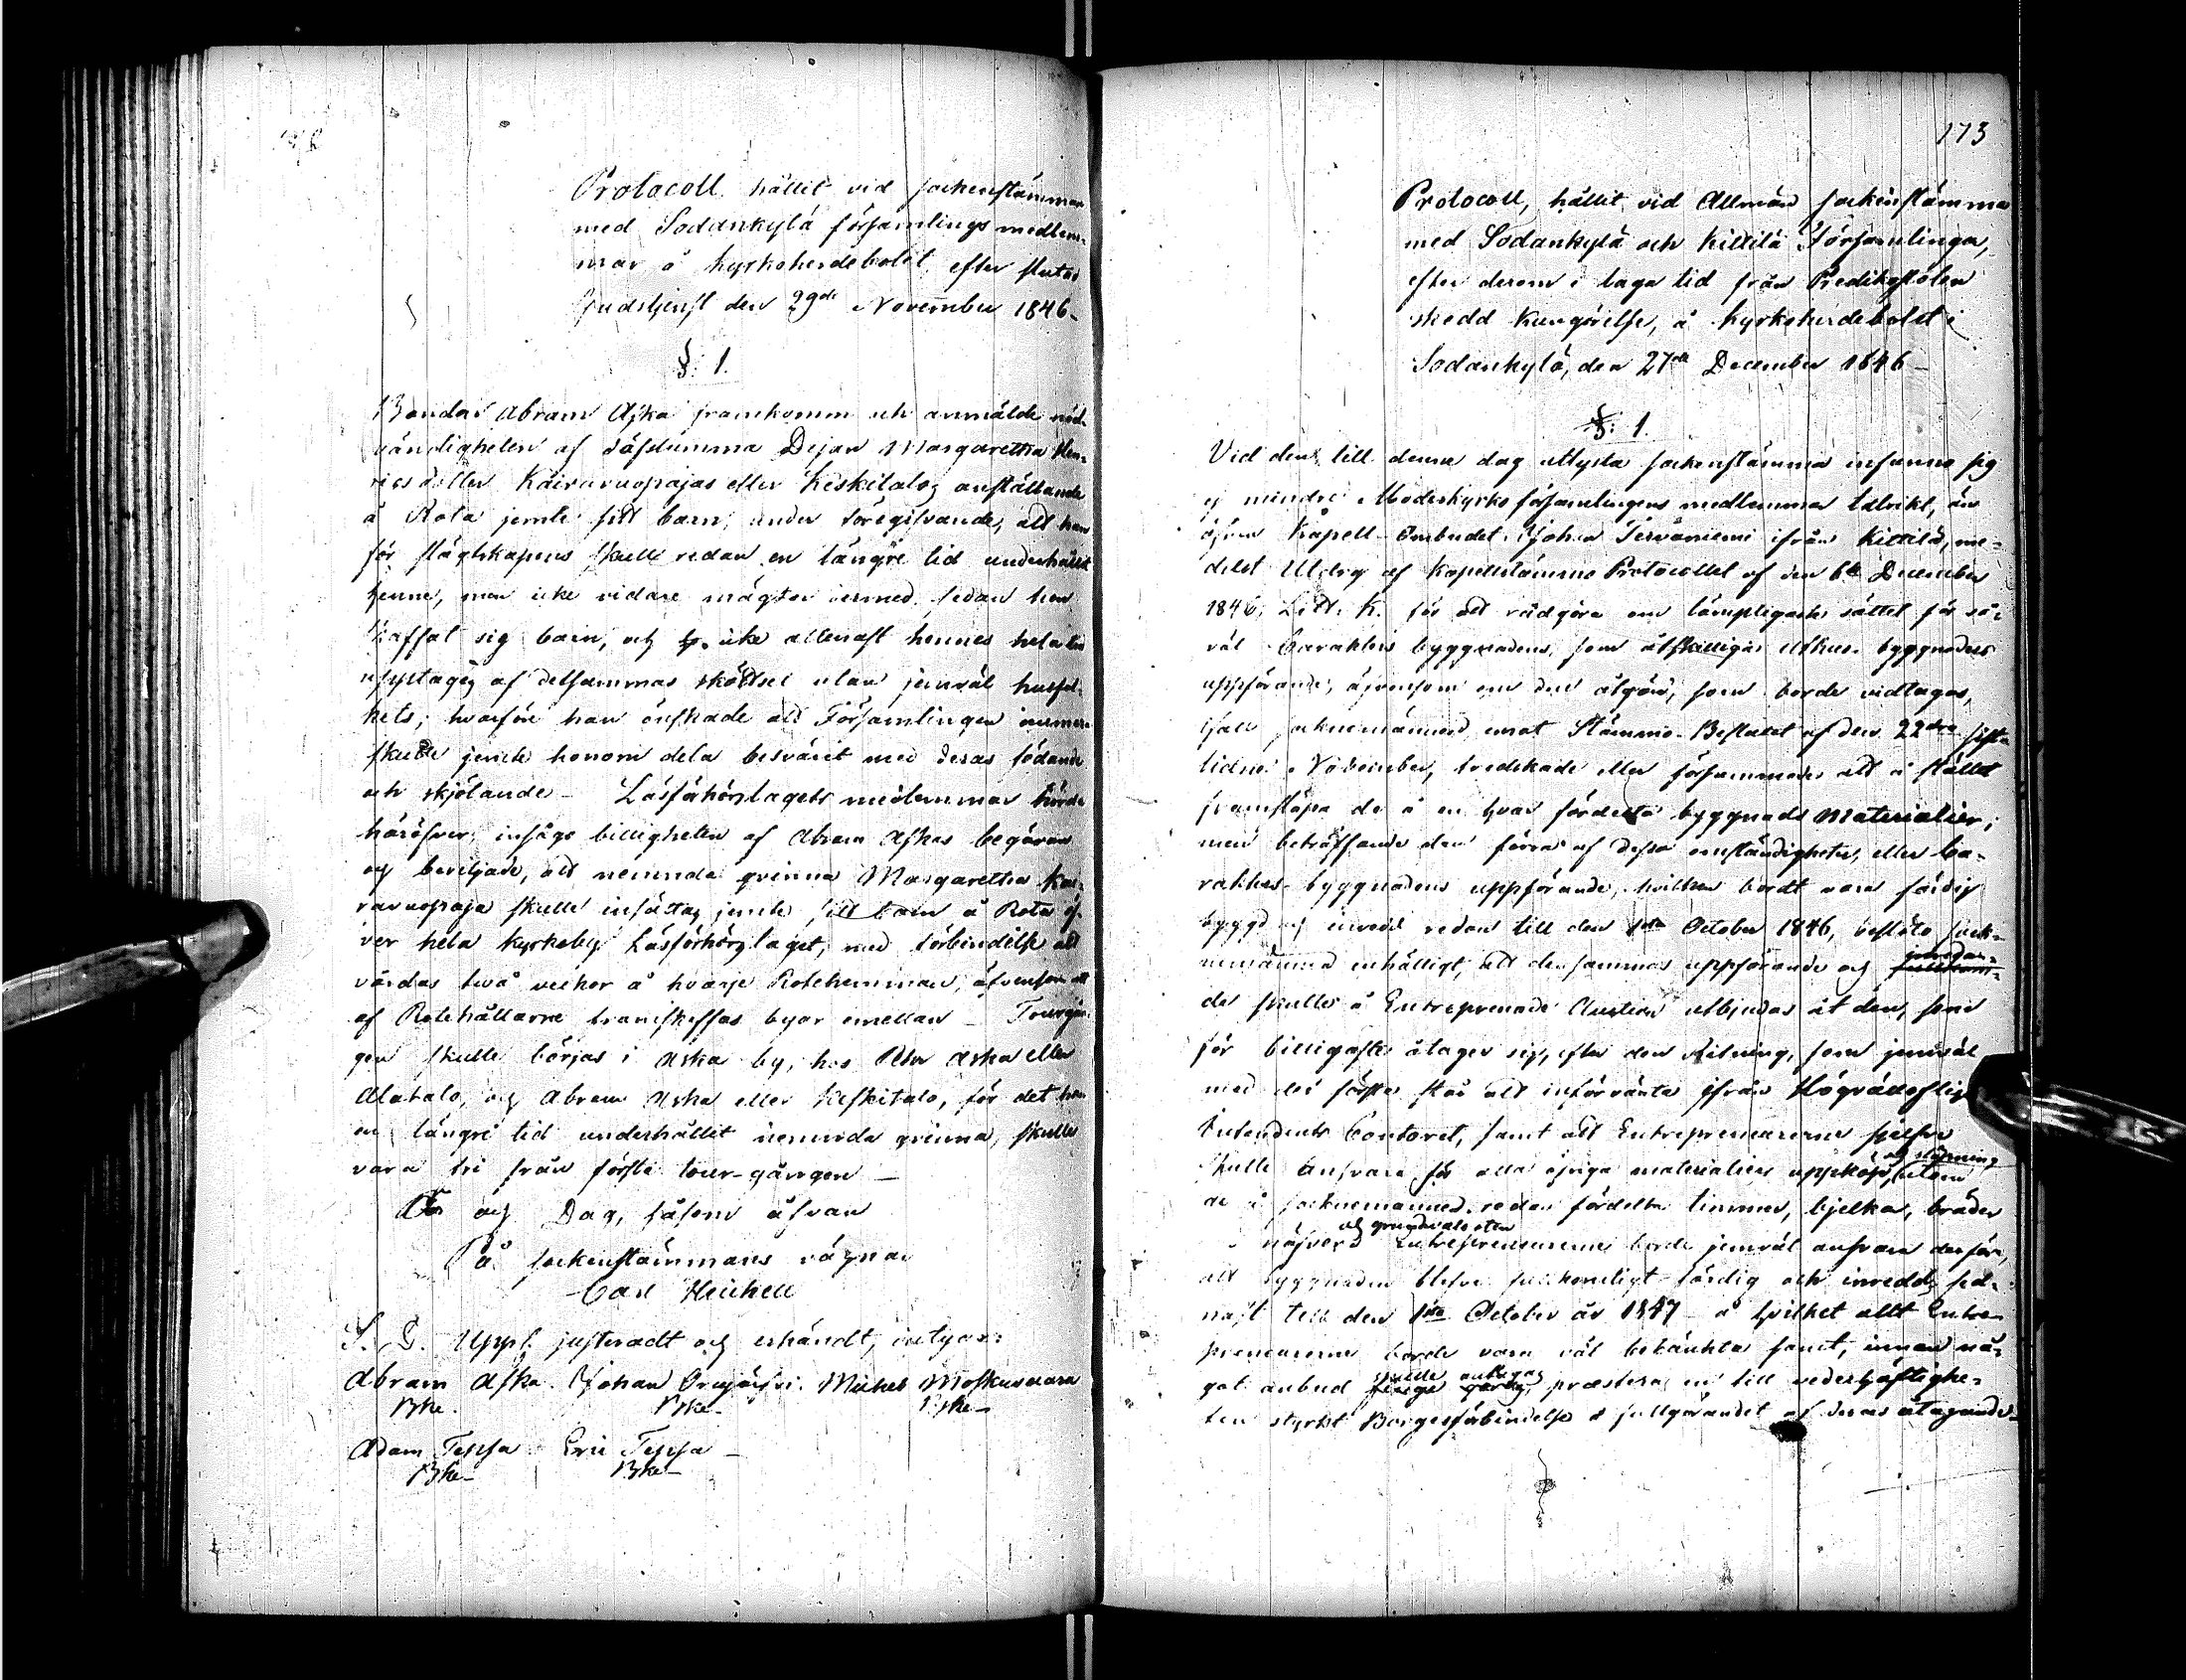 Protocoll hållit vid sockenstämman
med Sodankylä församlings medlem-
mar å kyrkoherdebolet, efter slutad
Gudstjenst den 29de November 1846-
§: 1.
Bonden Abram Aska framkomm och anmälde nöd-
vändigheten af
Margaretha Hen-
eller Keskitalos anställande
å Rota jemte sitt barn, under föregifvande, att han
för slägtskapens skull redan en längre tid underhållit
henne, men icke vidare mägtar dermed sedan hon
skaffat sig barn, och icke allenast hennes hela tid
upptages af detsammas skötsel utan jemväl
hvarföre han önskade att Församlingen
skulle jemte honom dela besväret med deras födande
och skjötande - Läsförhörslagets medlemmar hörde
häröfver, insågo billigheten af Abram Askas begäran
och beviljade, att nemnda qvinna Margaretha Kai-
ravuopaja skulle jemte sitt barn å Rota öf-
ver hela Kyrkoby Läsförhörslaget, med förbindelse att
vårdas två veckor å hvarje Rotehemman, äfvensom att
af Rotehållarne transkaffas byar emellan - Tourgån-
gen skulle börjas i Aska by, hos Petter Aska eller
Alatalo, och Abram Aska eller Keskitalo, för det han
en längre tid underhållit nemnda qvinna, skulle
vara fri från första tour-gången -
År och Dag, såsom ofvan
På sockenstämmans vägnar
Carl Heickell
Uppl. justeradt och erkändt, intyga:
Abram Aska. Johan Orajärvi. Michel Moskuvaara
Bke. Bke- Bke-
Adam Teppa Eric Teppa -
Bke- Bke-
173
Protocoll, hållit vid Allmän sockenstämma
med Sodankylä och Kittilä Församlingar,
efter derom i laga tid från Predikostolen
skedd Kungörelse, å Kyrkoherdebolet i
Sodankylä, den 27de December 1846 -
§: 1.
Vid den till denna dag utlysta sockenstämma infunno sig
ej mindre Moderkyrko församlingens medlemmar talrikt, än
äfven Kapell-Ombudet Johan Tervaniemi ifrån Kittilä, me-
delst Utdrag af Kapellstämmo Protocollet af den 6te December
1846, Litt. K. för att rådgöra om lämpligaste sättet för så-
väl Barackers byggnadens, som åtskilliga uthus byggnaders
uppförande, äfvensom om den åtgärd, som borde vidtagas,
ifall socknemännerne emot Stämmo-Beslutet af den 22dra sist-
lidne November, tredskade eller försummade att å stället
framsläpa de å en hvar fördelta byggnads Materialier;
men beträffande den förra af dessa omständigheter, eller Ba-
rackers-byggnadens uppförande, hvilken bordt vara färdig
byggd och inredd redan till den 1sta October 1846, beslöto sock-
nemännerne enhälligt, att densammas uppförande och inredan-
de skulle å Entreprenade Auction utbjudas åt den, som
för billigaste åtager sig, efter den Ritning, som jemväl
med det första står att införvänta ifrån Högvällofliga
Intendents Contoret, samt att Entrepreneurerne sjelfve
skulle ansvara för alla öfriga materialiers uppköp och släpning, utom
de å socknemännerne redan fördelta timmer, bjelkar, bräder
näfver och grundvalsstenar Entrepreneurerne borde jemväl ansvara derföre,
att byggnaden blefve fullkomligt färdig och inredd, sed-
nast till den 1sta October år 1847 - å hvilket allt Entre-
preneurerne borde vara väl betänkta samt, innan nå-
got anbud skulle antagas, præstera en till vederhäftighe-
ten styrkt Borgesförbindelse å fullgörandet af deras åtagande-